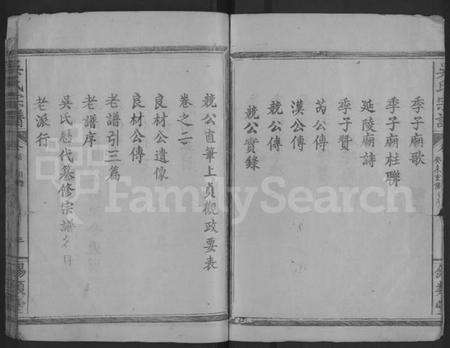 季子廟歌
季子廟柱聯
延陵廟詩
季子贊
芮公傳
漢公傳
兢公傳
兢公實錄
兢公直筆上貞觀政要表
卷之二
良材公遺像
良材公傳
老譜引三篇
老譜序
吳氏歷代纂修宗譜名目
老派行
吳氏宗譜
錫類堂
FamilySearch